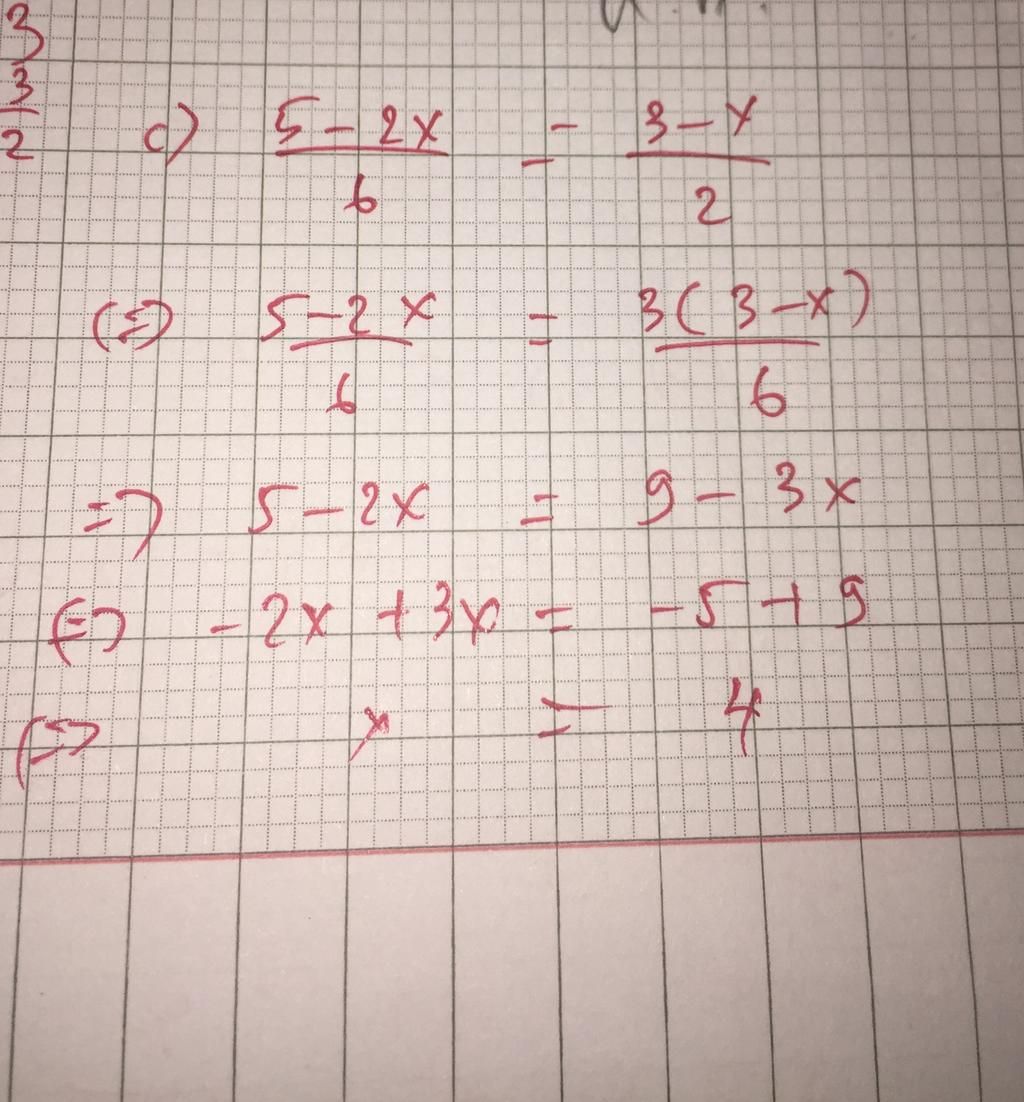 3
3/2
c) (5 - 2x)/6 = (3 - x)/2
(=) (5 - 2x)/6 = 3(3 - x)/6
=) 5 - 2x = 9 - 3x
(=) - 2x + 3x = - 5 + 9
(=) x = 4